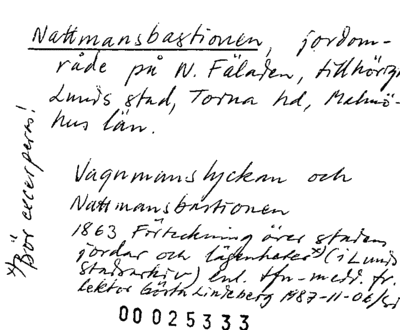 Nattmansbastionen, jordom-
råde på N. Fäladen, tillhörigt
Lunds stad, Torna hd, Malmö-
hus län.
Vagnmanslyckan och
Nattmansbastionen
1863 Förteckning över stadens
jordar och lägenheter*) (i Lunds
stadsarkiv) enl. tfn-medd. fr.
lektor Gösta Lindeberg 1987-11-06/
*) Bör excerperas!
00025333